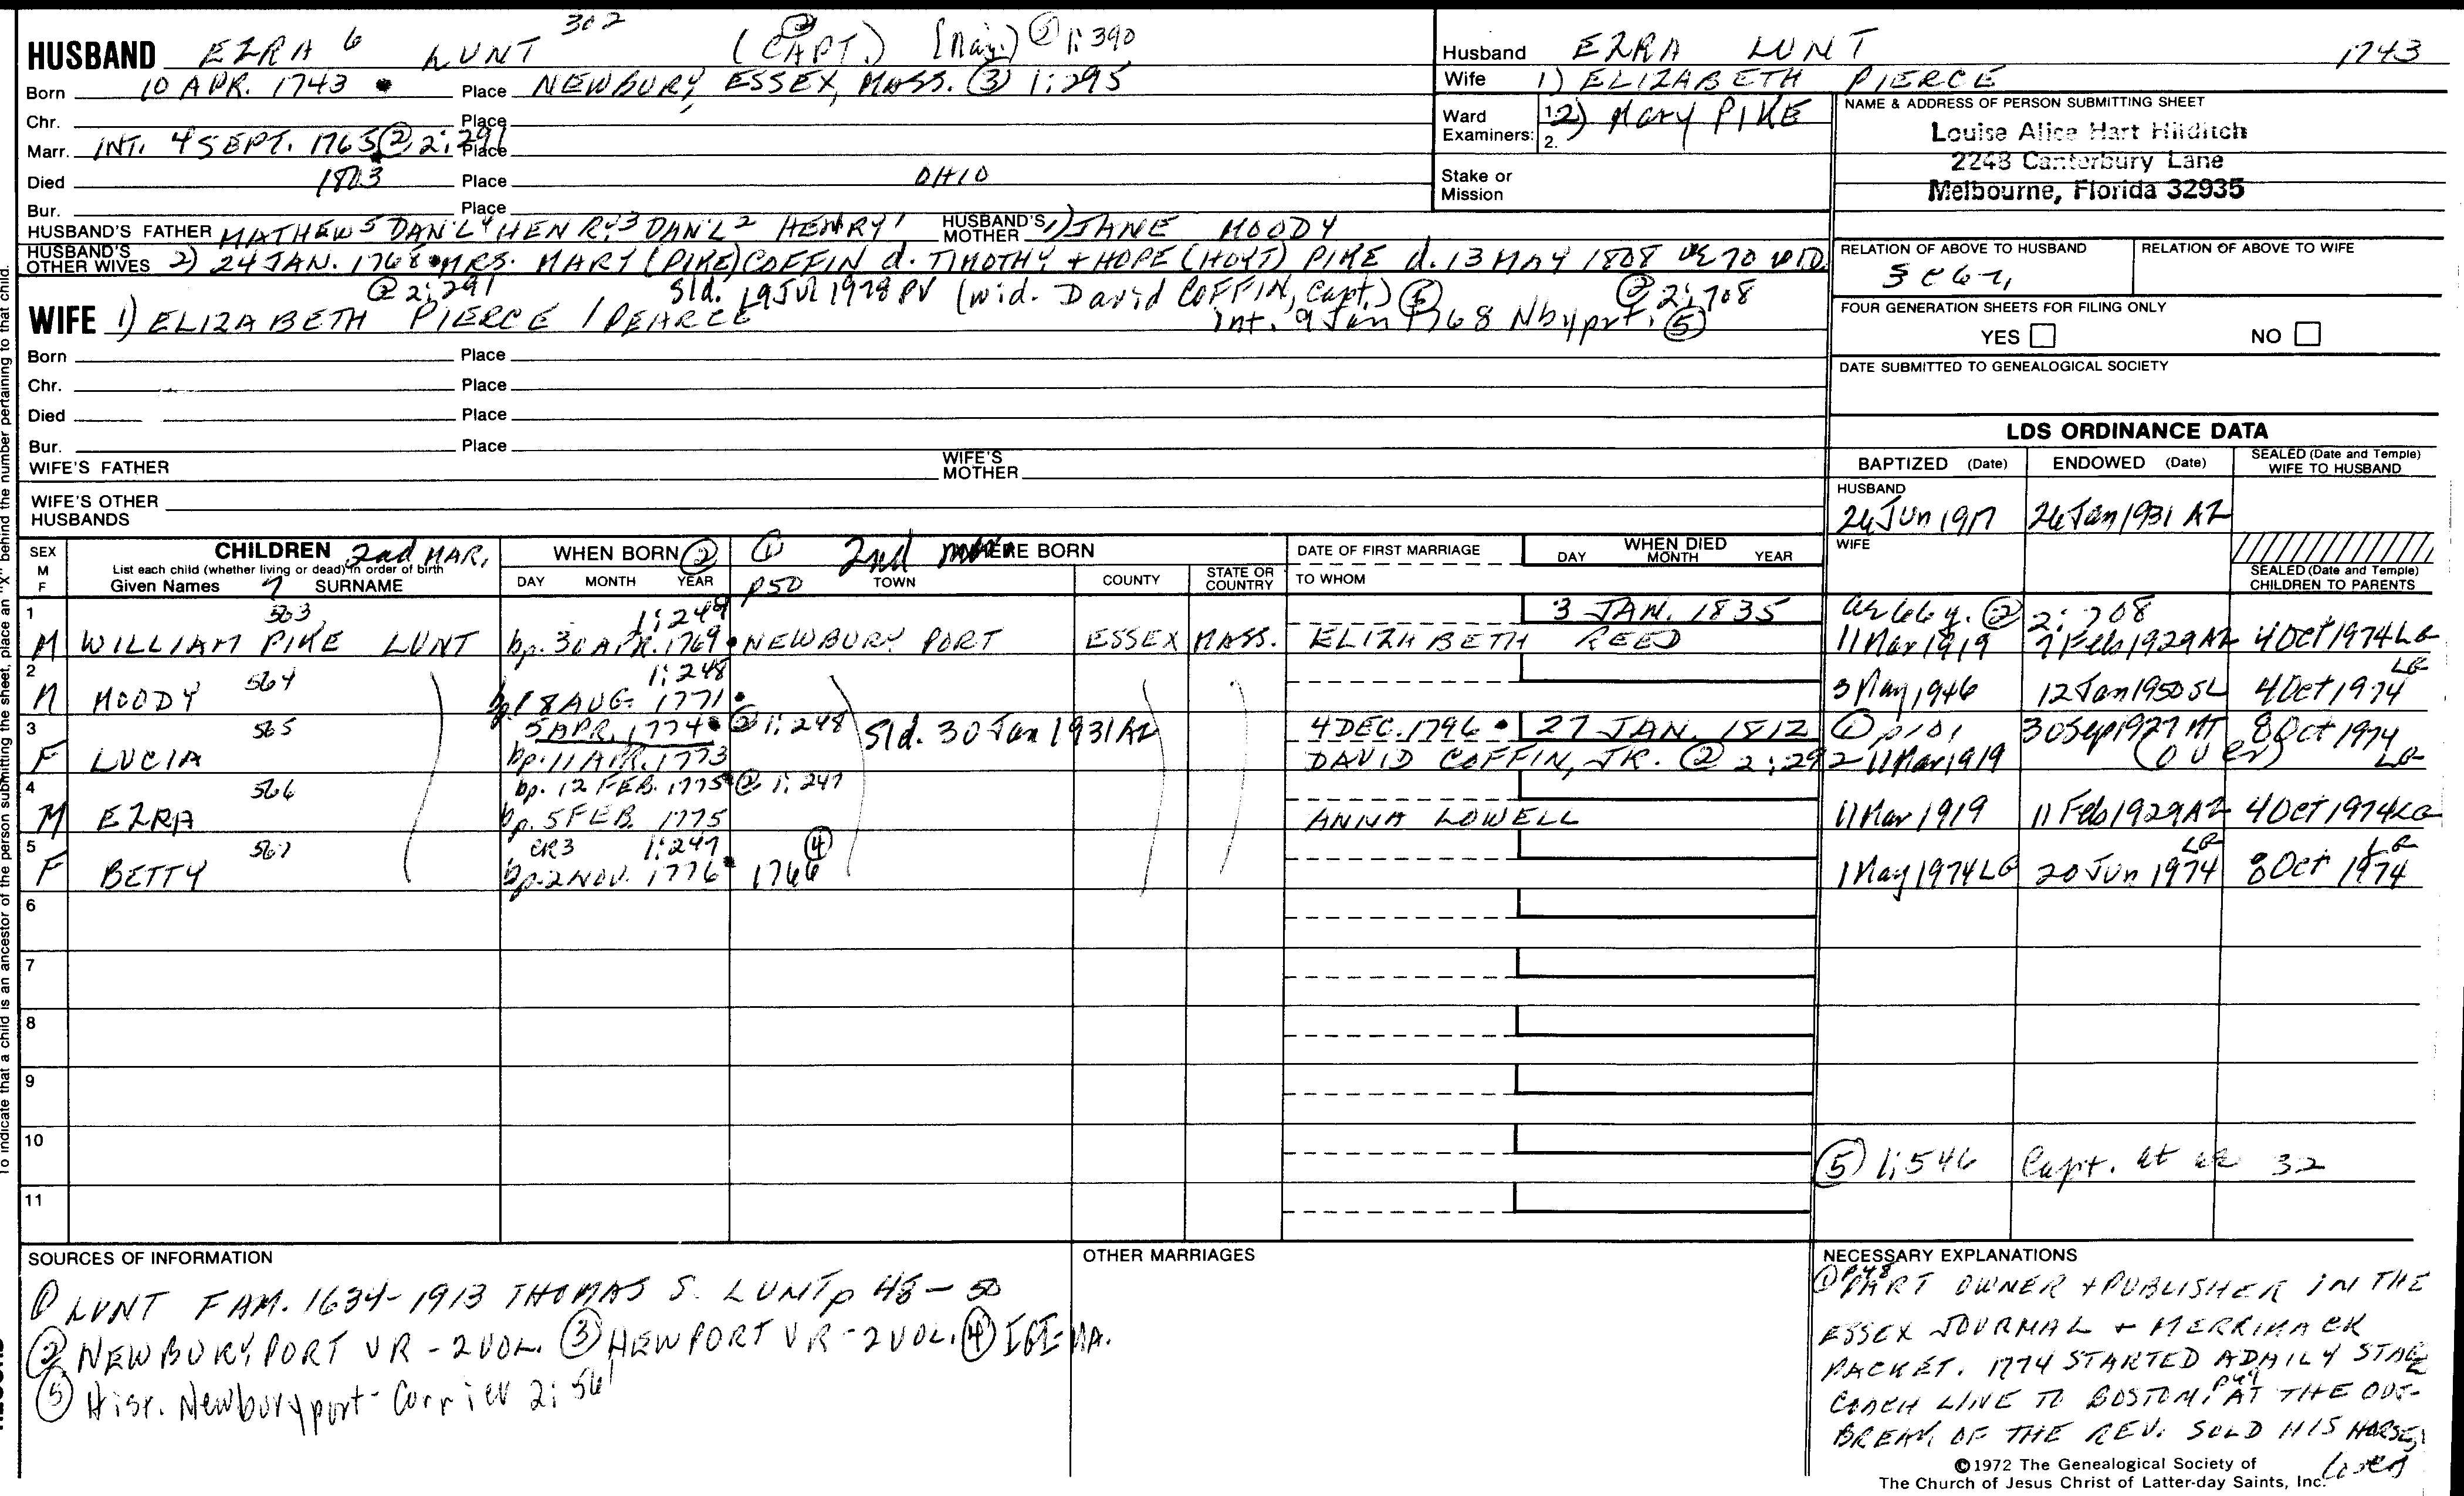 302
HUSBAND EZRA 6 LUNT (CAPT.) (Maj.) ② 1:390
Born 10 APR. 1743 Place NEWBURY, ESSEX, MASS. ③ 1:295
Chr. Place
Marr. INT. 4 SEPT. 1765 ② 2:291 Place
Died 1803 Place OHIO
Bur. Place
HUSBAND'S FATHER MATHEW 5 DAN'L 4 HENRY 3 DAN'L 2 HENRY 1 HUSBAND'S MOTHER 1) JANE MOODY
HUSBAND'S OTHER WIVES 2) 24 JAN. 1768 MRS. MARY (PIKE) COFFIN d. TIMOTHY + HOPE (HOYT) PIKE d. 13 MAY 1808 Æ 70 WID.
② 2:291 Sld. 19 Jul 1978 PV (wid. David COFFIN, Capt.) ⑤ ② 2:708
WIFE 1) ELIZABETH PIERCE / PEARCE Int. 9 Jan 1768 Nbyprt. ⑤
Born Place
Chr. Place
Died Place
Bur. Place
WIFE'S FATHER WIFE'S MOTHER
WIFE'S OTHER HUSBANDS
Husband EZRA LUNT 1743
Wife 1) ELIZABETH PIERCE
Ward Examiners: 1. 2) Mary PIKE
2.
Stake or Mission
NAME & ADDRESS OF PERSON SUBMITTING SHEET
Louise Alice Hart Hilditch
2248 Canterbury Lane
Melbourne, Florida 32935
RELATION OF ABOVE TO HUSBAND RELATION OF ABOVE TO WIFE
FOUR GENERATION SHEETS FOR FILING ONLY
YES NO
DATE SUBMITTED TO GENEALOGICAL SOCIETY
LDS ORDINANCE DATA
BAPTIZED (Date) ENDOWED (Date) SEALED (Date and Temple) WIFE TO HUSBAND
HUSBAND
26 Jun 1917 26 Jan 1931 AZ
WIFE
SEALED (Date and Temple) CHILDREN TO PARENTS
SEX M F
CHILDREN 2nd MAR.
List each child (whether living or dead) in order of birth
Given Names 7 SURNAME
WHEN BORN ②
DAY MONTH YEAR
① p50 2nd mar WHERE BORN
TOWN COUNTY STATE OR COUNTRY
DATE OF FIRST MARRIAGE
TO WHOM
WHEN DIED
DAY MONTH YEAR
1 563 1:249 3 JAN. 1835 ② 2:708
M WILLIAM PIKE LUNT bp. 30 APR. 1769 NEWBURY PORT ESSEX MASS. ELIZABETH REED 11 Mar 1919 7 Feb 1929 AZ 4 Oct 1974 LG
2 564 1:248 LG
M MOODY bp 18 AUG. 1771 3 May 1946 12 Jan 1950 SL 4 Oct 1974
3 565 5 APR. 1774 ② 1:248 Sld. 30 Jan 1931 AZ 4 DEC. 1796 27 JAN. 1812 ① p101 30 Sep 1927 AZ 8 Oct 1974
F LUCIA bp. 11 APR. 1773 DAVID COFFIN, JR. ② 2:292 11 Mar 1919 (over) LG
4 566 bp. 12 FEB. 1775 ② 1:247
M EZRA bp. 5 FEB. 1775 ANNA LOWELL 11 Mar 1919 11 Feb 1929 AZ 4 Oct 1974 LG
5 567 CR3 1:247 ④ LG LG
F BETTY bp. 2 NOV. 1776 1766 1 May 1974 LG 20 Jun 1974 8 Oct 1974
6
7
8
9
10 ⑤ 1:546 Capt. at ae 32
11
SOURCES OF INFORMATION
① LUNT FAM. 1634-1913 THOMAS S. LUNT p 48-50
② NEWBURYPORT VR - 2 VOL. ③ NEWPORT VR - 2 VOL. ④ IGI-MA.
⑤ Hist. Newburyport - Currier 2:561
OTHER MARRIAGES
NECESSARY EXPLANATIONS
① p48 PART OWNER + PUBLISHER IN THE
ESSEX JOURNAL + MERRIMACK
PACKET. 1774 STARTED A DAILY STAGE
COACH LINE TO BOSTON. p49 AT THE OUT-
BREAK OF THE REV. SOLD HIS HORSES,
(over)
©1972 The Genealogical Society of
The Church of Jesus Christ of Latter-day Saints, Inc.
To indicate that a child is an ancestor of the person submitting the sheet, place an "X" behind the number pertaining to that child.